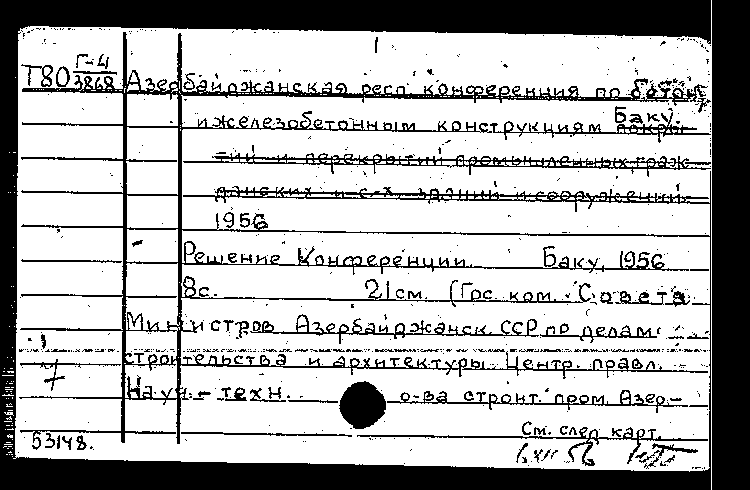 1
Т80 Г-4/3868 Азербайджанская респ. конференция по бетон.
ижелезобетонным конструкциям Баку.
ий и перекрытий промышленных, граж-
данских и с.-х. зданий и сооружений.
1956
Решение Конференции. Баку, 1956
8с. 21см. (Гос. ком. Совета
Министров Азербайджанск. ССР по делам
строительства и архитектуры. Центр. правл.
Науч.-техн. о-ва строит. пром. Азер-
См. след карт.
53148.